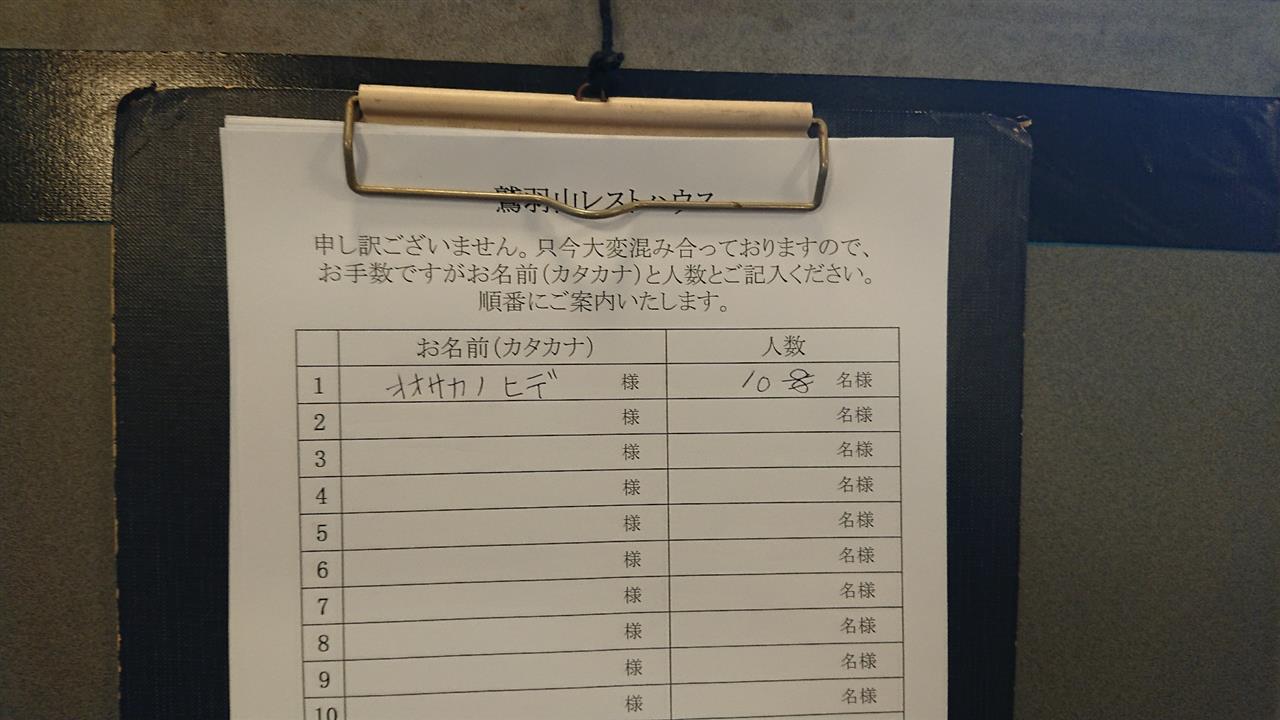 鷲羽山レストハウス
申し訳ございません。只今大変混み合っておりますので、
お手数ですがお名前(カタカナ)と人数とご記入ください。
順番にご案内いたします。
お名前(カタカナ) 人数
1 オオサカノヒデ 様 10 名様
2 様 名様
3 様 名様
4 様 名様
5 様 名様
6 様 名様
7 様 名様
8 様 名様
9 様 名様
10 様 名様